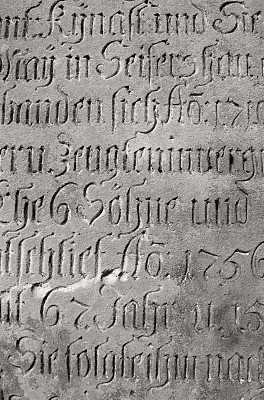 auf. Kÿnast und Sie
May in Seifershau.
banden sich Aõ: 1710
ern Zeugten in verg
Ehe 6 Söhne und
tschlief Aõ. 1756
67 Jahr u. 13
Sie folgte ihm nach